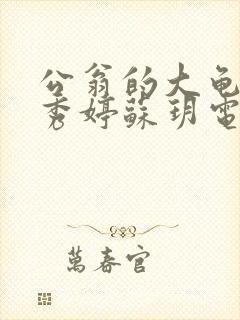 公翁的大龟
秀婷蘇玥電
萬春官